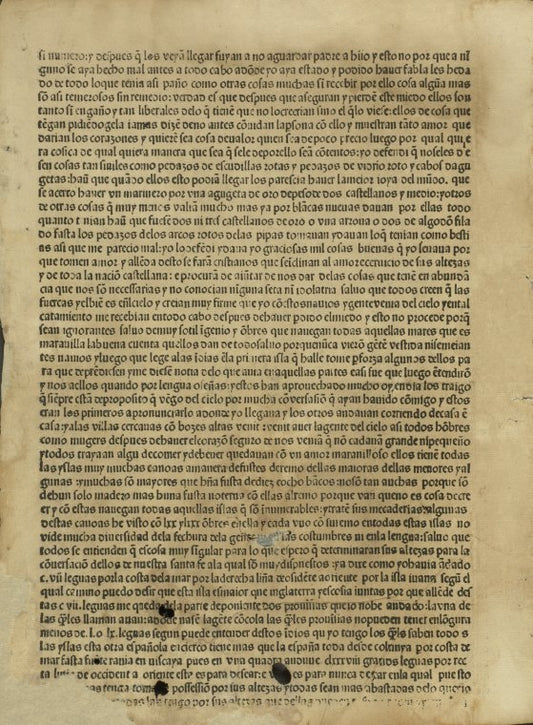 si numero: y despues q̃ los veyã llegar fuyan a no aguardar padre a hijo y esto no por que a ni
guno se aya hecho mal antes a todo cabo adõde yo aya estado y podido hauer fabla les he da
do de todo loque tenia asi paño como otras cosas muchas si reccbir por ello cosa algũa mas
sõ asi temerosos sin remedio: verdad es que despues que aseguran y pierdẽ este miedo ellos son
tanto si engaño y tan liberales delo q̃ tienẽ que no lo creerian sino el q̃ lo viese: ellos de cosa que
tẽgan pidiẽdogela iamas dizẽ de no antes cõuidan la psona cõ ello y muestran tãto amor que
darian los corazones y quierẽ sea cosa de ualor quien sea de poco precio luego por qual quie
ra cosica de qual quiera manera que sea q̃ sele de por ello seã cõtentos: yo defendi q̃ noseles die
sen cosas tan siuiles como pedazos de escudillas rotas y pedazos de vidrio roto y cabos dagu
getas: haũ que quãdo ellos esto podiã llegar los parescia hauer la meior ioya del mũdo. que
se acerto hauer vn marinero por vna agugeta de oro de peso de dos castellanos y medio: y otros
de otras cosas q̃ muy menos valiã mucho mas ya por blãcas nueuas dauan por ellas todo
quanto tenian haũ que fuesẽ dos ni tres castellanos de oro o vna arroua o dos de algodõ fila
do fasta los pedazos delos arcos rotos delas pipas tomauan y dauan loq̃ tenian como besti
as asi que me parecio mal: yo lo defẽdi y daua yo graciosas mil cosas buenas q̃ yo leuaua por
que tomen amor y allẽda desto se farã cristianos que se iclinan al amor e ceruicio de sus altezas
y de toda la naciõ castellana: e procurã de aiũtar de nos dar delas cosas que tenẽ en abundã
cia que nos sõ necessarias y no conocian nĩguna seta nĩ idolatria saluo que todos creen q̃ las
fuercas y el biẽ es eñl cielo y creian muy firme que yo cõ estos nauios y gente venia del cielo y en tal
catamiento me recebian en todo cabo despues de hauer pdido el miedo y esto no procede porq̃
sean ignorantes saluo de muy sotil igenio y õbres que nauegan todas aquellas mares que es
marauilla la buena cuenta quellos dan de todo saluo porque nũca vierõ gẽte vestida ni semeian
tes nauios y luego que lege alas idias ẽla primera isla q̃ halle tome pforza algunos dellos pa
ra que deprẽdiesen y me diesẽ notia delo que auia en aquellas partes e asi fue que luego ẽtendirõ
y nos a ellos quando por lengua o señas: y estos han aprouechado mucho oy en dia los traigo
q̃ siẽpre estã de proposito q̃ vẽgo del cielo por mucha cõuersasiõ q̃ ayan hauido cõmigo y estos
eran los primeros a pronunciarlo adonde yo llegaua y los otros andauan corriendo de casa ẽ
casa: y alas villas cercanas cõ bozes altas venit: venit a uer la gente del cielo asi todos hõbres
como mugeres despues de hauer el corazõ seguro de nos veniã q̃ nõ cadauã grande ni pequeño
y todos trayan algu de comer y de beuer que dauan cõ vn amor marauilloso ellos tienẽ todas
las yslas muy muchas canoas a manera de fustes de remo dellas maiores dellas menores y al
gunas: y muchas sõ mayores que hũa fusta de diez e ocho bãcos: nosõ tan anchas porque sõ
de hun solo madero mas huna fusta noterna cõ ellas al remo porque van que no es cosa de cre
er y cõ estas nauegan todas aquellas islas q̃ sõ inumerables: y tratẽ sus mecaderias: algunas
destas canoas he visto cõ lxx y lxxx õbres en ella y cada vno cõ su remo en todas estas islas no
vide mucha diuersidad dela fechura dela gente ni en las costumbres ni en la lengua: saluo que
todos se entienden q̃ es cosa muy sigular para lo que espero q̃ eterminaran sus altezas para la
cõuersaciõ dellos de nuestra santa fe ala qual sõ muy dispuestos: ya dixe como yo hauia ãdado
c. vii leguas por la costa dela mar por la derecha liña de osidẽte a oriente por la isla iuana segũ el
qual camino puedo desir que esta isla es maior que inglaterra y escosia iuntas por que allẽde des
tas c vii. leguas me queda dela parte de poniente dos prouinas que io nohe andado: la vna de
las q̃les llaman auau: adõde nasẽ la gẽte cõ cola las q̃les prouisias no pueden tener enlõgura
menos de. l. o lx. leguas segun puede entender destos ĩdios q̃ yo tengo los q̃les saben todos
las yslas esta otra española en cierco tiene mas que la españa toda desde colunya por costa de
mar fasta fuẽte rauia en viscaya pues en vna quadra anduue clxxxviii grandes leguas por rec
ta linia de occident a oriente esta es para desear: e v es para nunca dexar en la qual puesto
as tenga toma possessiõ por sus altezas y todas sean mas abastadas delo que yo